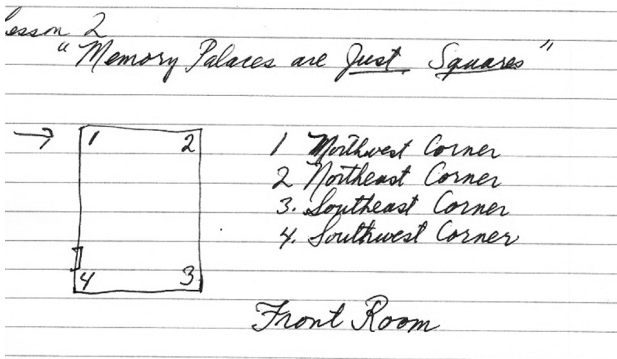 Lesson 2
"Memory Palaces are Just Squares"
1 2
4 3
1 Northwest Corner
2 Northeast Corner
3. Southeast Corner
4. Southwest Corner
Front Room